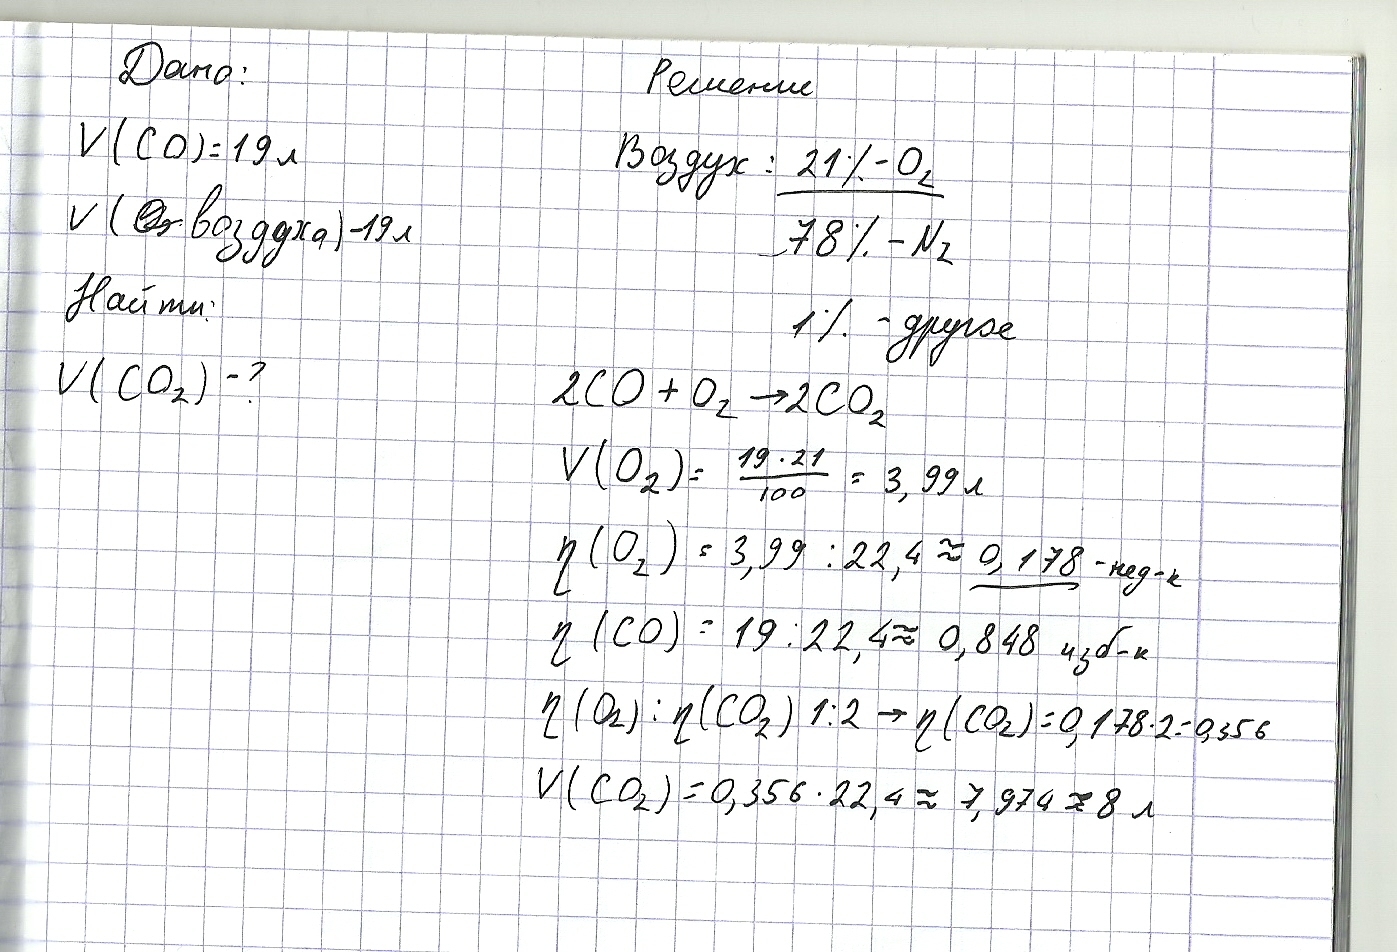 Дано:
V(CO)=19л
V(воздуха)-19л
Найти:
V(CO₂) -?
Решение
Воздух: 21% - O₂
78% - N₂
1% - другие
2CO + O₂ → 2CO₂
V(O₂) = 19·21/100 = 3,99 л
η(O₂) = 3,99 : 22,4 ≈ 0,178 - нед-к
η(CO) = 19 : 22,4 ≈ 0,848 изб-к
η(O₂) : η(CO₂) 1:2 → η(CO₂) = 0,178·2 = 0,356
V(CO₂) = 0,356·22,4 ≈ 7,974 ≈ 8 л